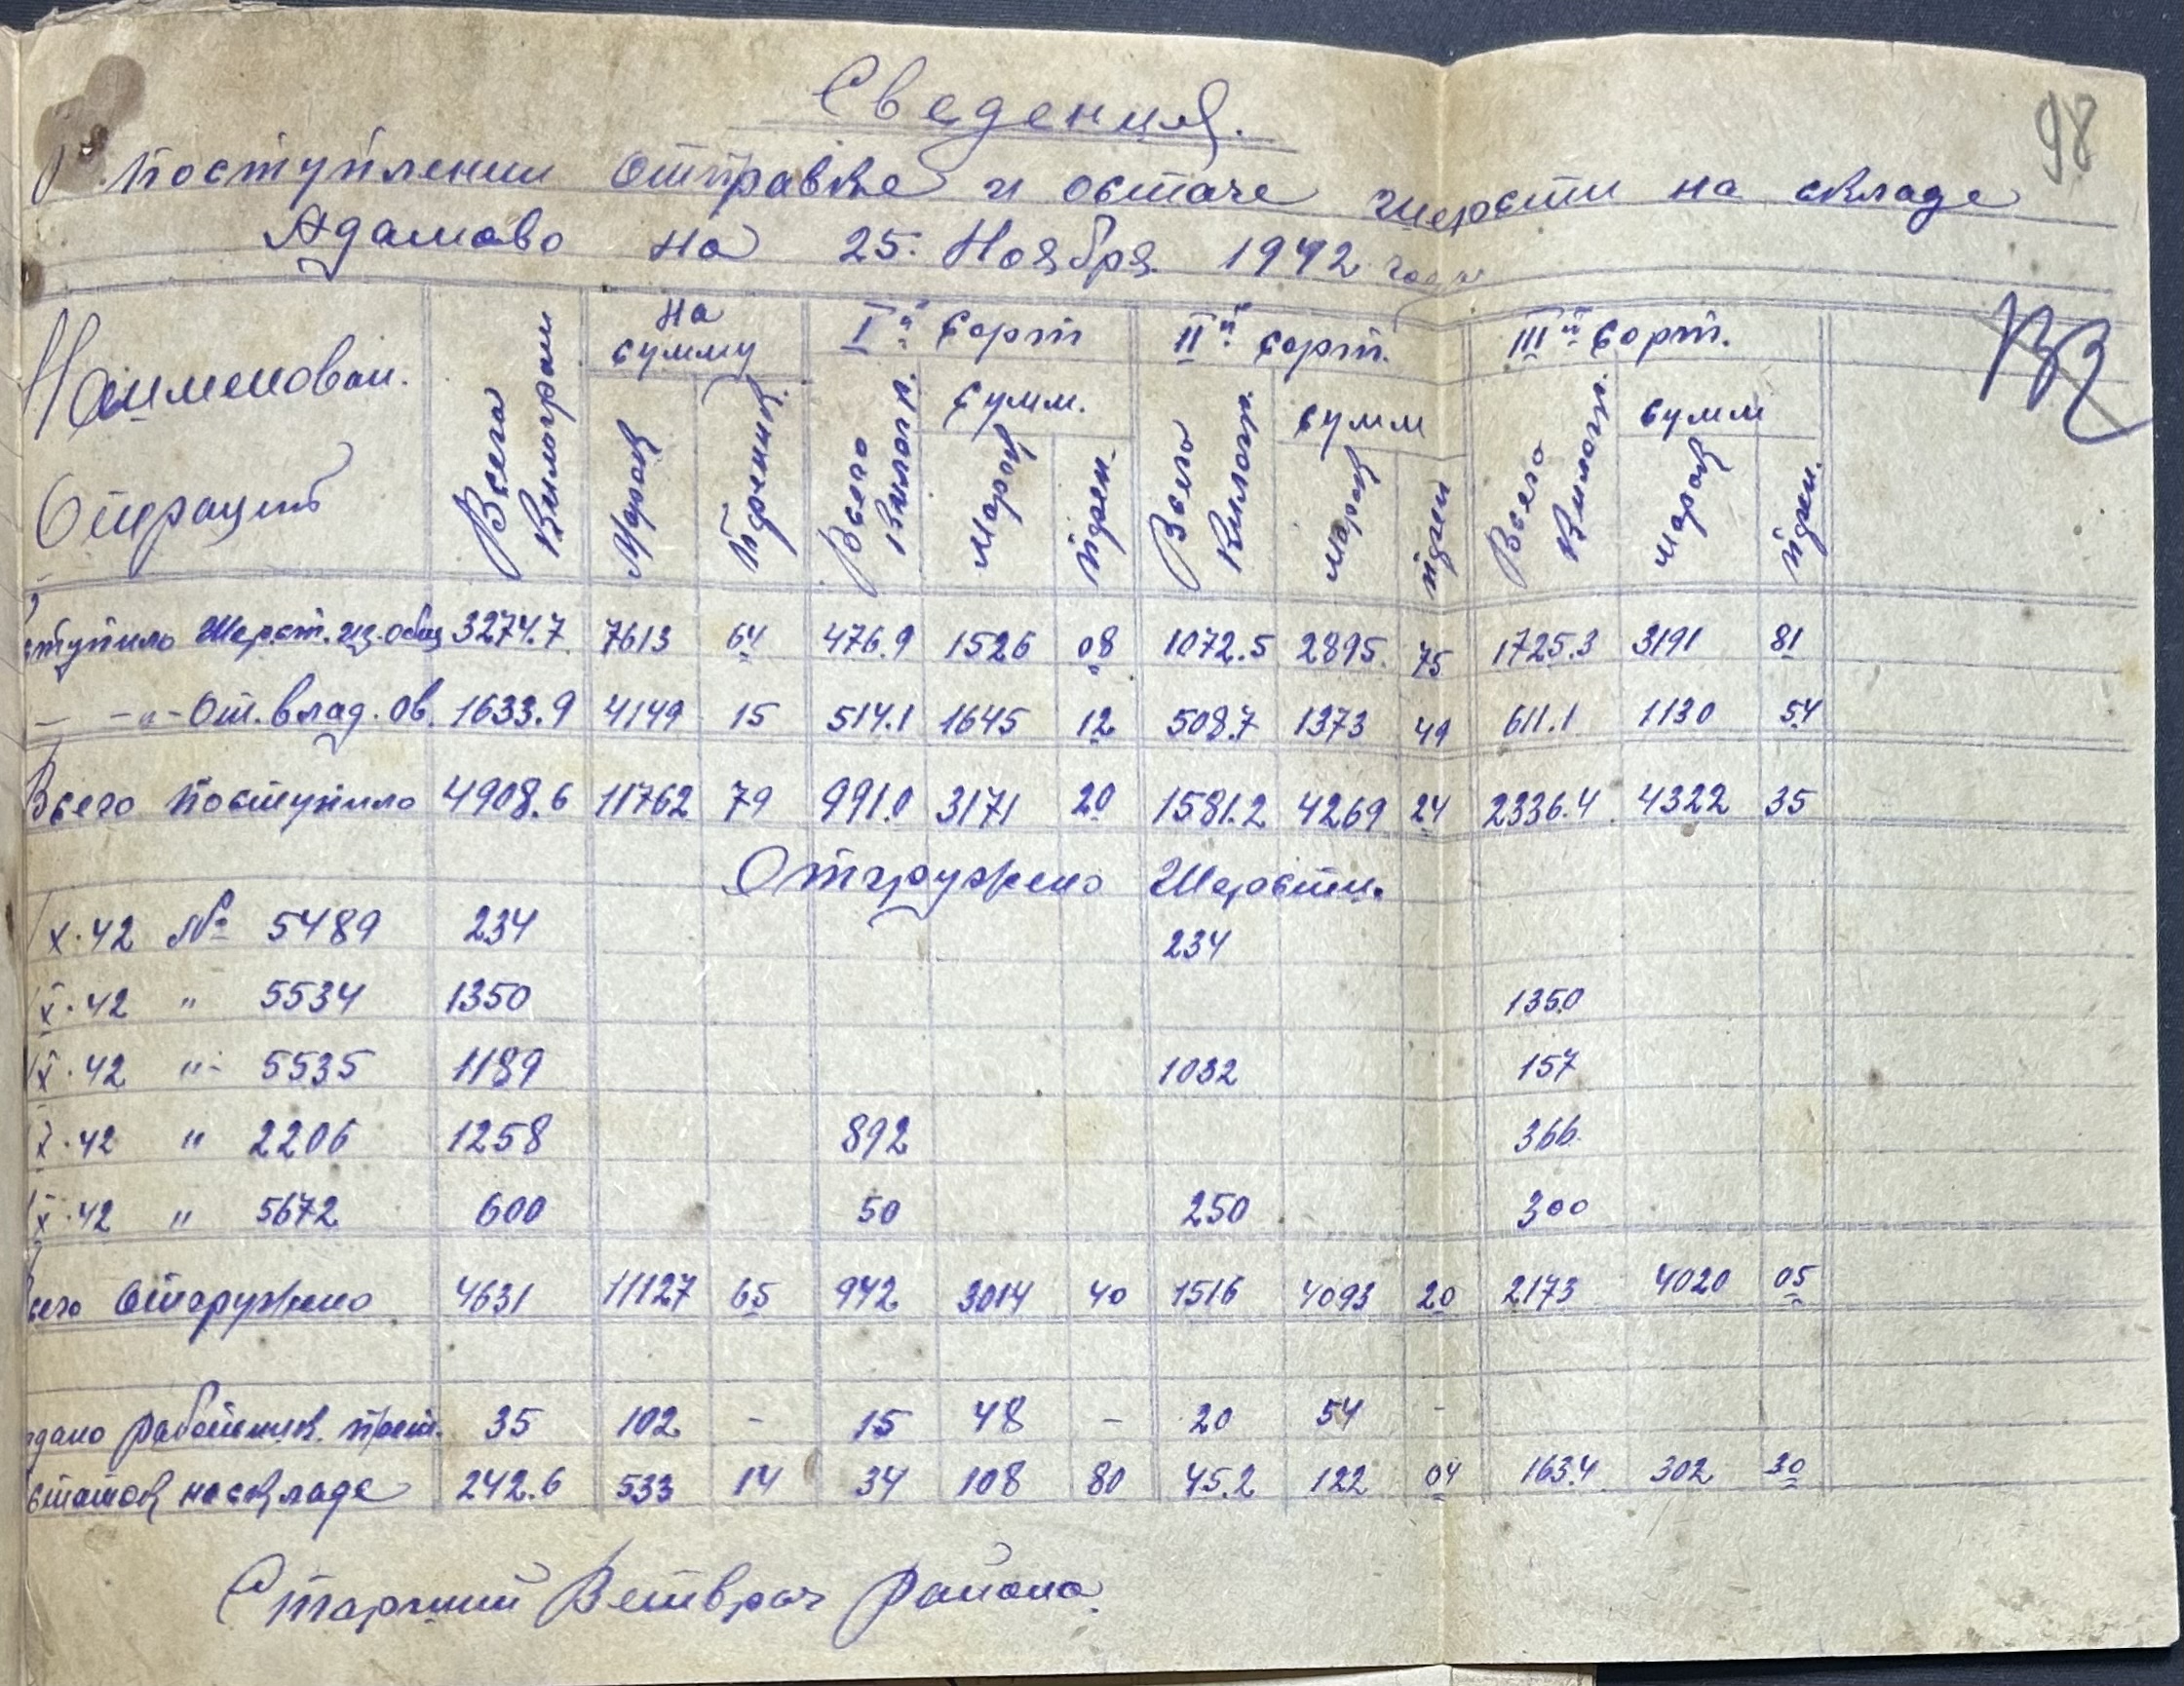 98
Сведения.
О поступлении отправке и остаче шерсти на складе
Адамово на 25. Ноября 1942 года
Наименован. Операций | Всего Килограм | на сумму Марок | Пфениг. | I й Сорт Всего Килогр. | Сумм. Марок | Пфен. | II й Сорт. Всего Килогр. | Сумм Марок | Пфен | III й Сорт. Всего Килогр. | Сумм Марок | Пфен.
ступило Шерст. из. общ 3274.7 7613 64 476.9 1526 08 1072.5 2895. 75 1725.3 3191 81
— -"- От. влад. ов. 1633.9 4149 15 514.1 1645 12 508.7 1373 49 611.1 1130 54
Всего поступило 4908.6 11762 79 991.0 3171 20 1581.2 4269 24 2336.4 4322 35
Отгружено Шерсти.
X·42 № 5489 234 234
X·42 " 5534 1350 1350
X·42 " 5535 1189 1032 157
X·42 " 2206 1258 892 366
X·42 " 5672 600 50 250 300
сего Отгружено 4631 11127 65 942 3014 40 1516 4093 20 2173 4020 05
дано работник. 35 102 - 15 48 - 20 54 -
статок на складе 242.6 533 14 34 108 80 45.2 122 04 163.4 302 30
Старший Ветврач Района.